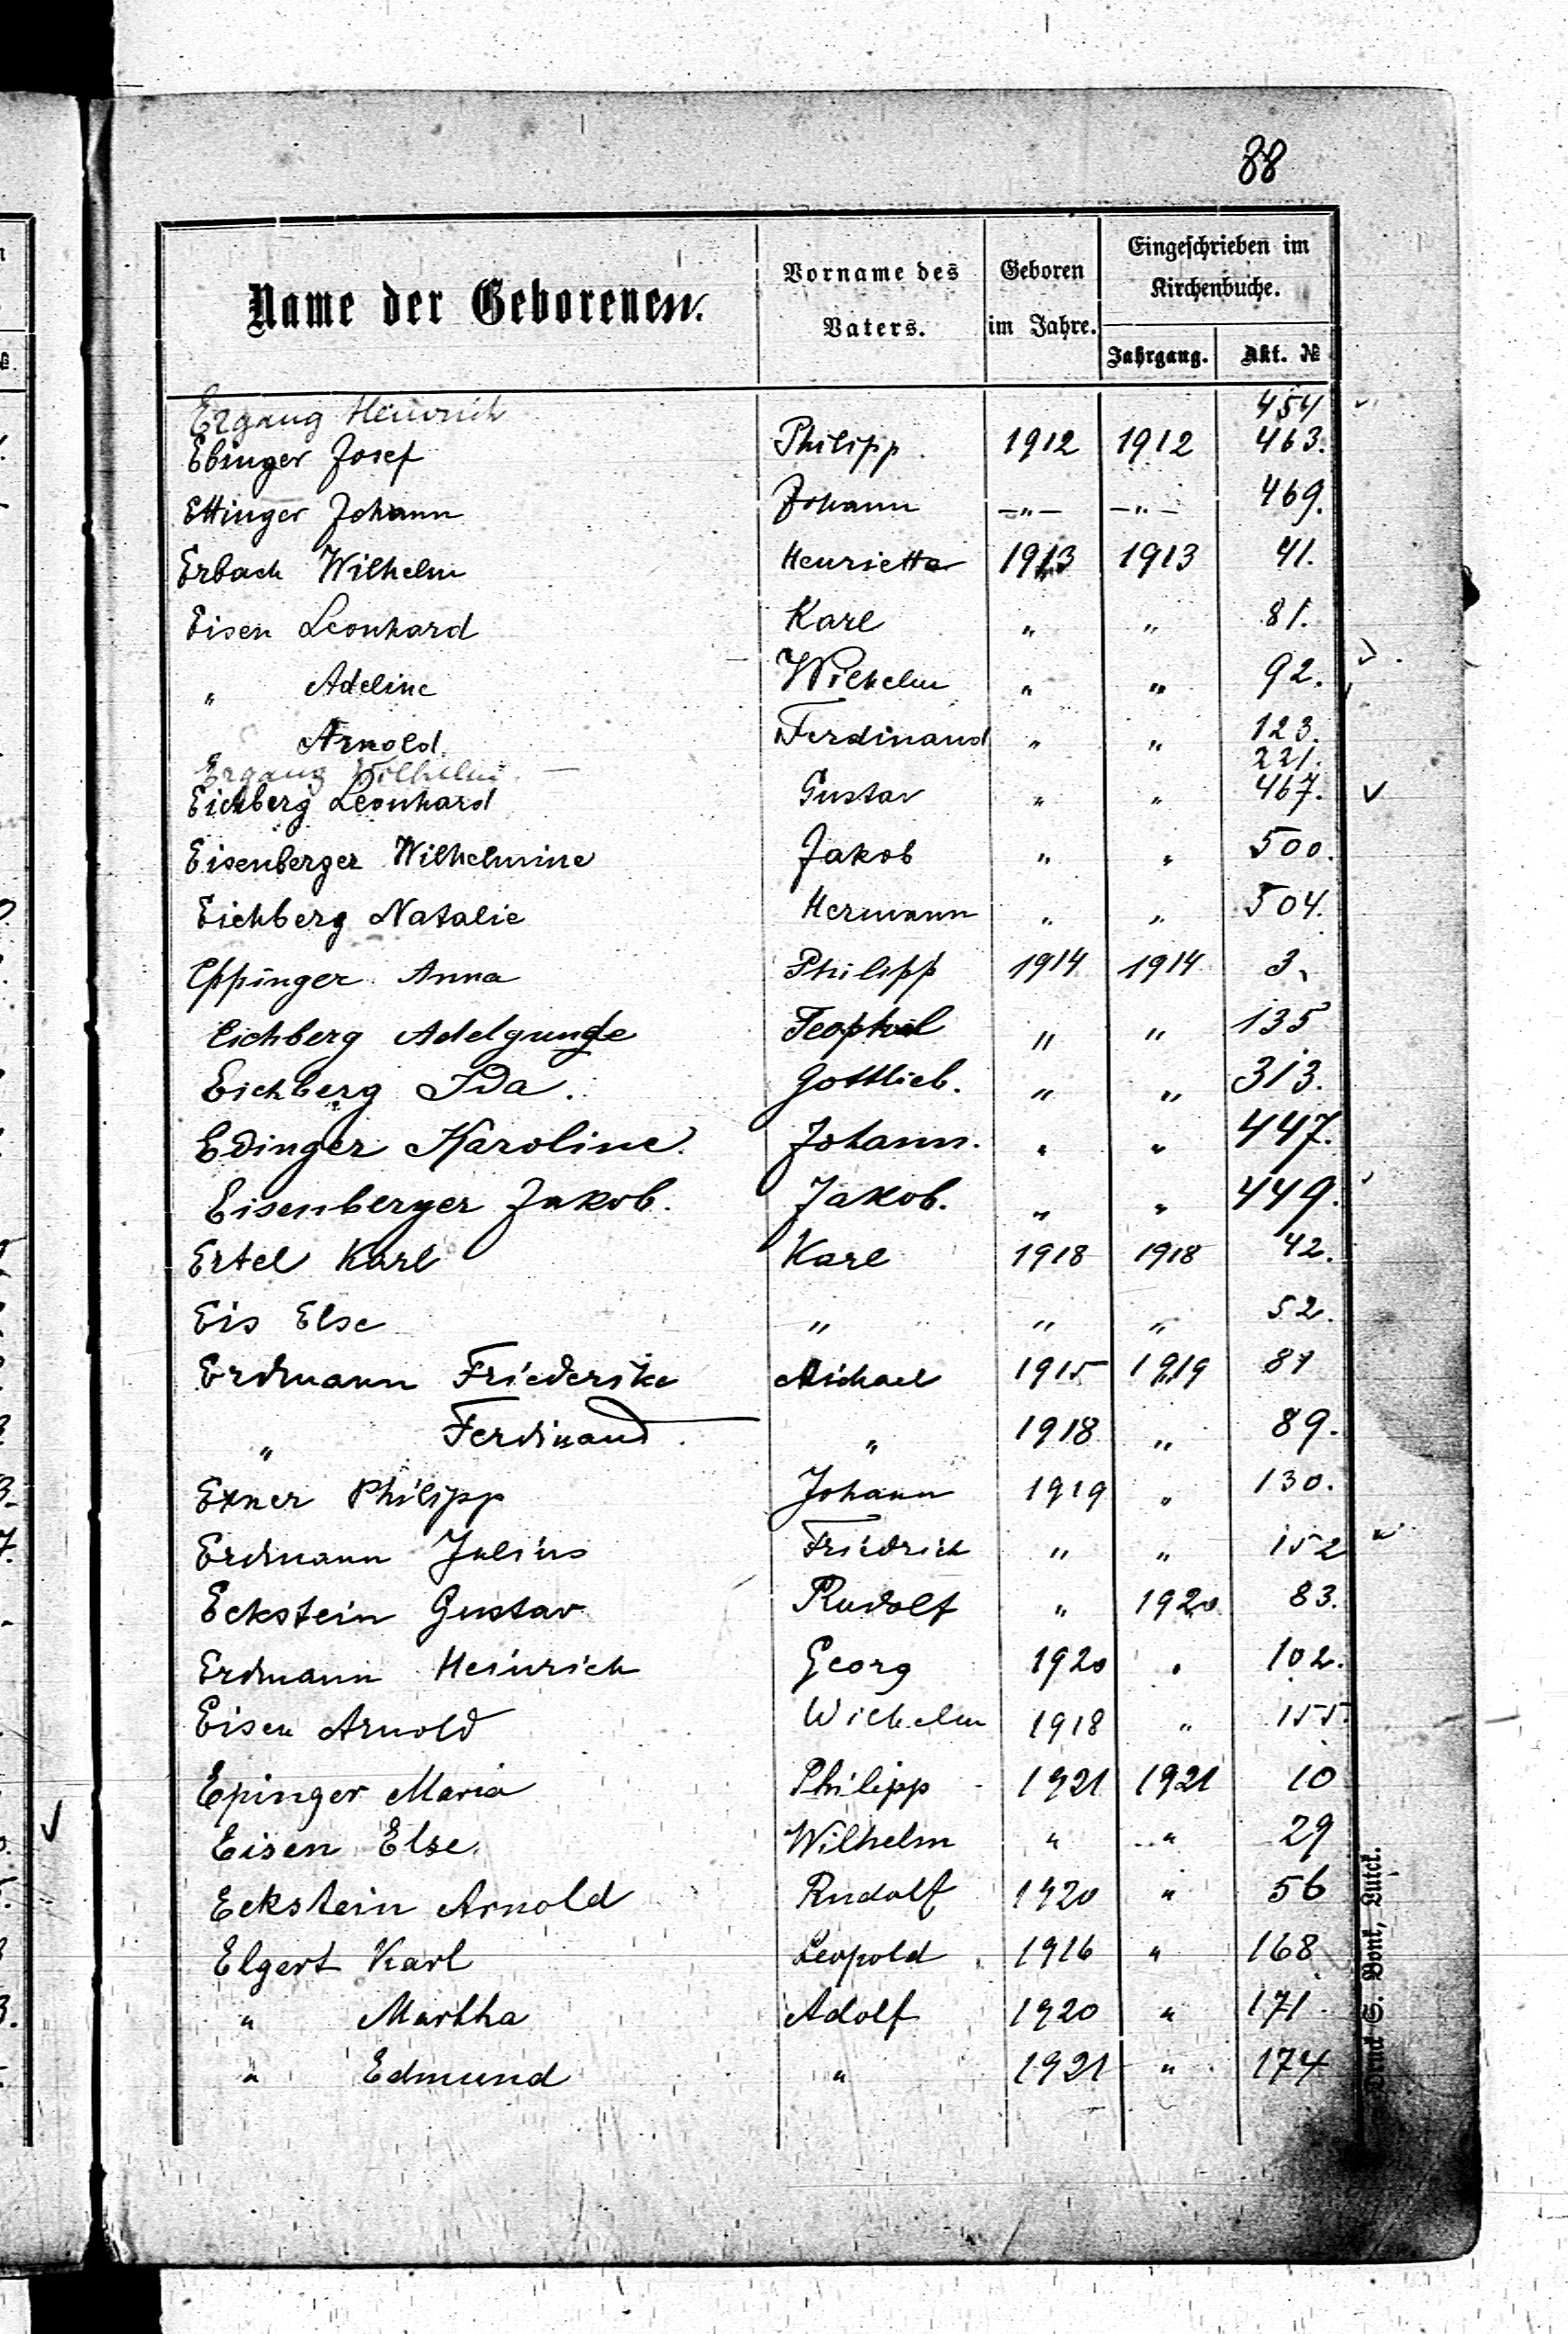 88
Name der Geborenen. Vorname des Vaters. Geboren im Jahre. Eingeschrieben im Kirchenbuche.
Jahrgang. Akt. №
Ergang Heinrich 454
Ebinger Josef Philipp 1912 1912 463.
Ettinger Johann Johann —„— —„— 469.
Erbach Wilhelm Henrietta 1913 1913 41.
Eisen Leonhard Karl „ „ 81.
„ Adeline Wilhelm „ „ 92.
Arnold Ferdinand „ „ 123.
Ergang Wilhelm 221.
Eichberg Leonhard Gustav „ „ 467. ✓
Eisenberger Wilhelmine Jakob „ „ 500.
Eichberg Natalie Hermann „ „ 504.
Eppinger Anna Philipp 1914 1914 3.
Eichberg Adelgunde Teophil „ „ 135
Eichberg Ida. Gottlieb. „ „ 313.
Edinger Karoline. Johann. „ „ 447.
Eisenberger Jakob. Jakob. „ „ 449.
Ertel Karl Karl 1918 1918 42.
Eis Else „ „ „ 52.
Erdmann Friederike Michael 1915 1919 81
„ Ferdinand. „ 1918 „ 89.
Exner Philipp Johann 1919 „ 130.
Erdmann Julius Friedrich „ „ 152
Eckstein Gustav Rudolf „ 1920 83.
Erdmann Heinrich Georg 1920 „ 102.
Eisen Arnold Wilhelm 1918 „ 155.
Epinger Maria Philipp 1921 1921 10
Eisen Else. Wilhelm „ „ 29
Eckstein Arnold Rudolf 1920 „ 56
Elgert Karl Leopold 1916 „ 168
„ Martha Adolf 1920 „ 171
„ Edmund „ 1921 „ 174
Druck S. Bonk, Lutck.